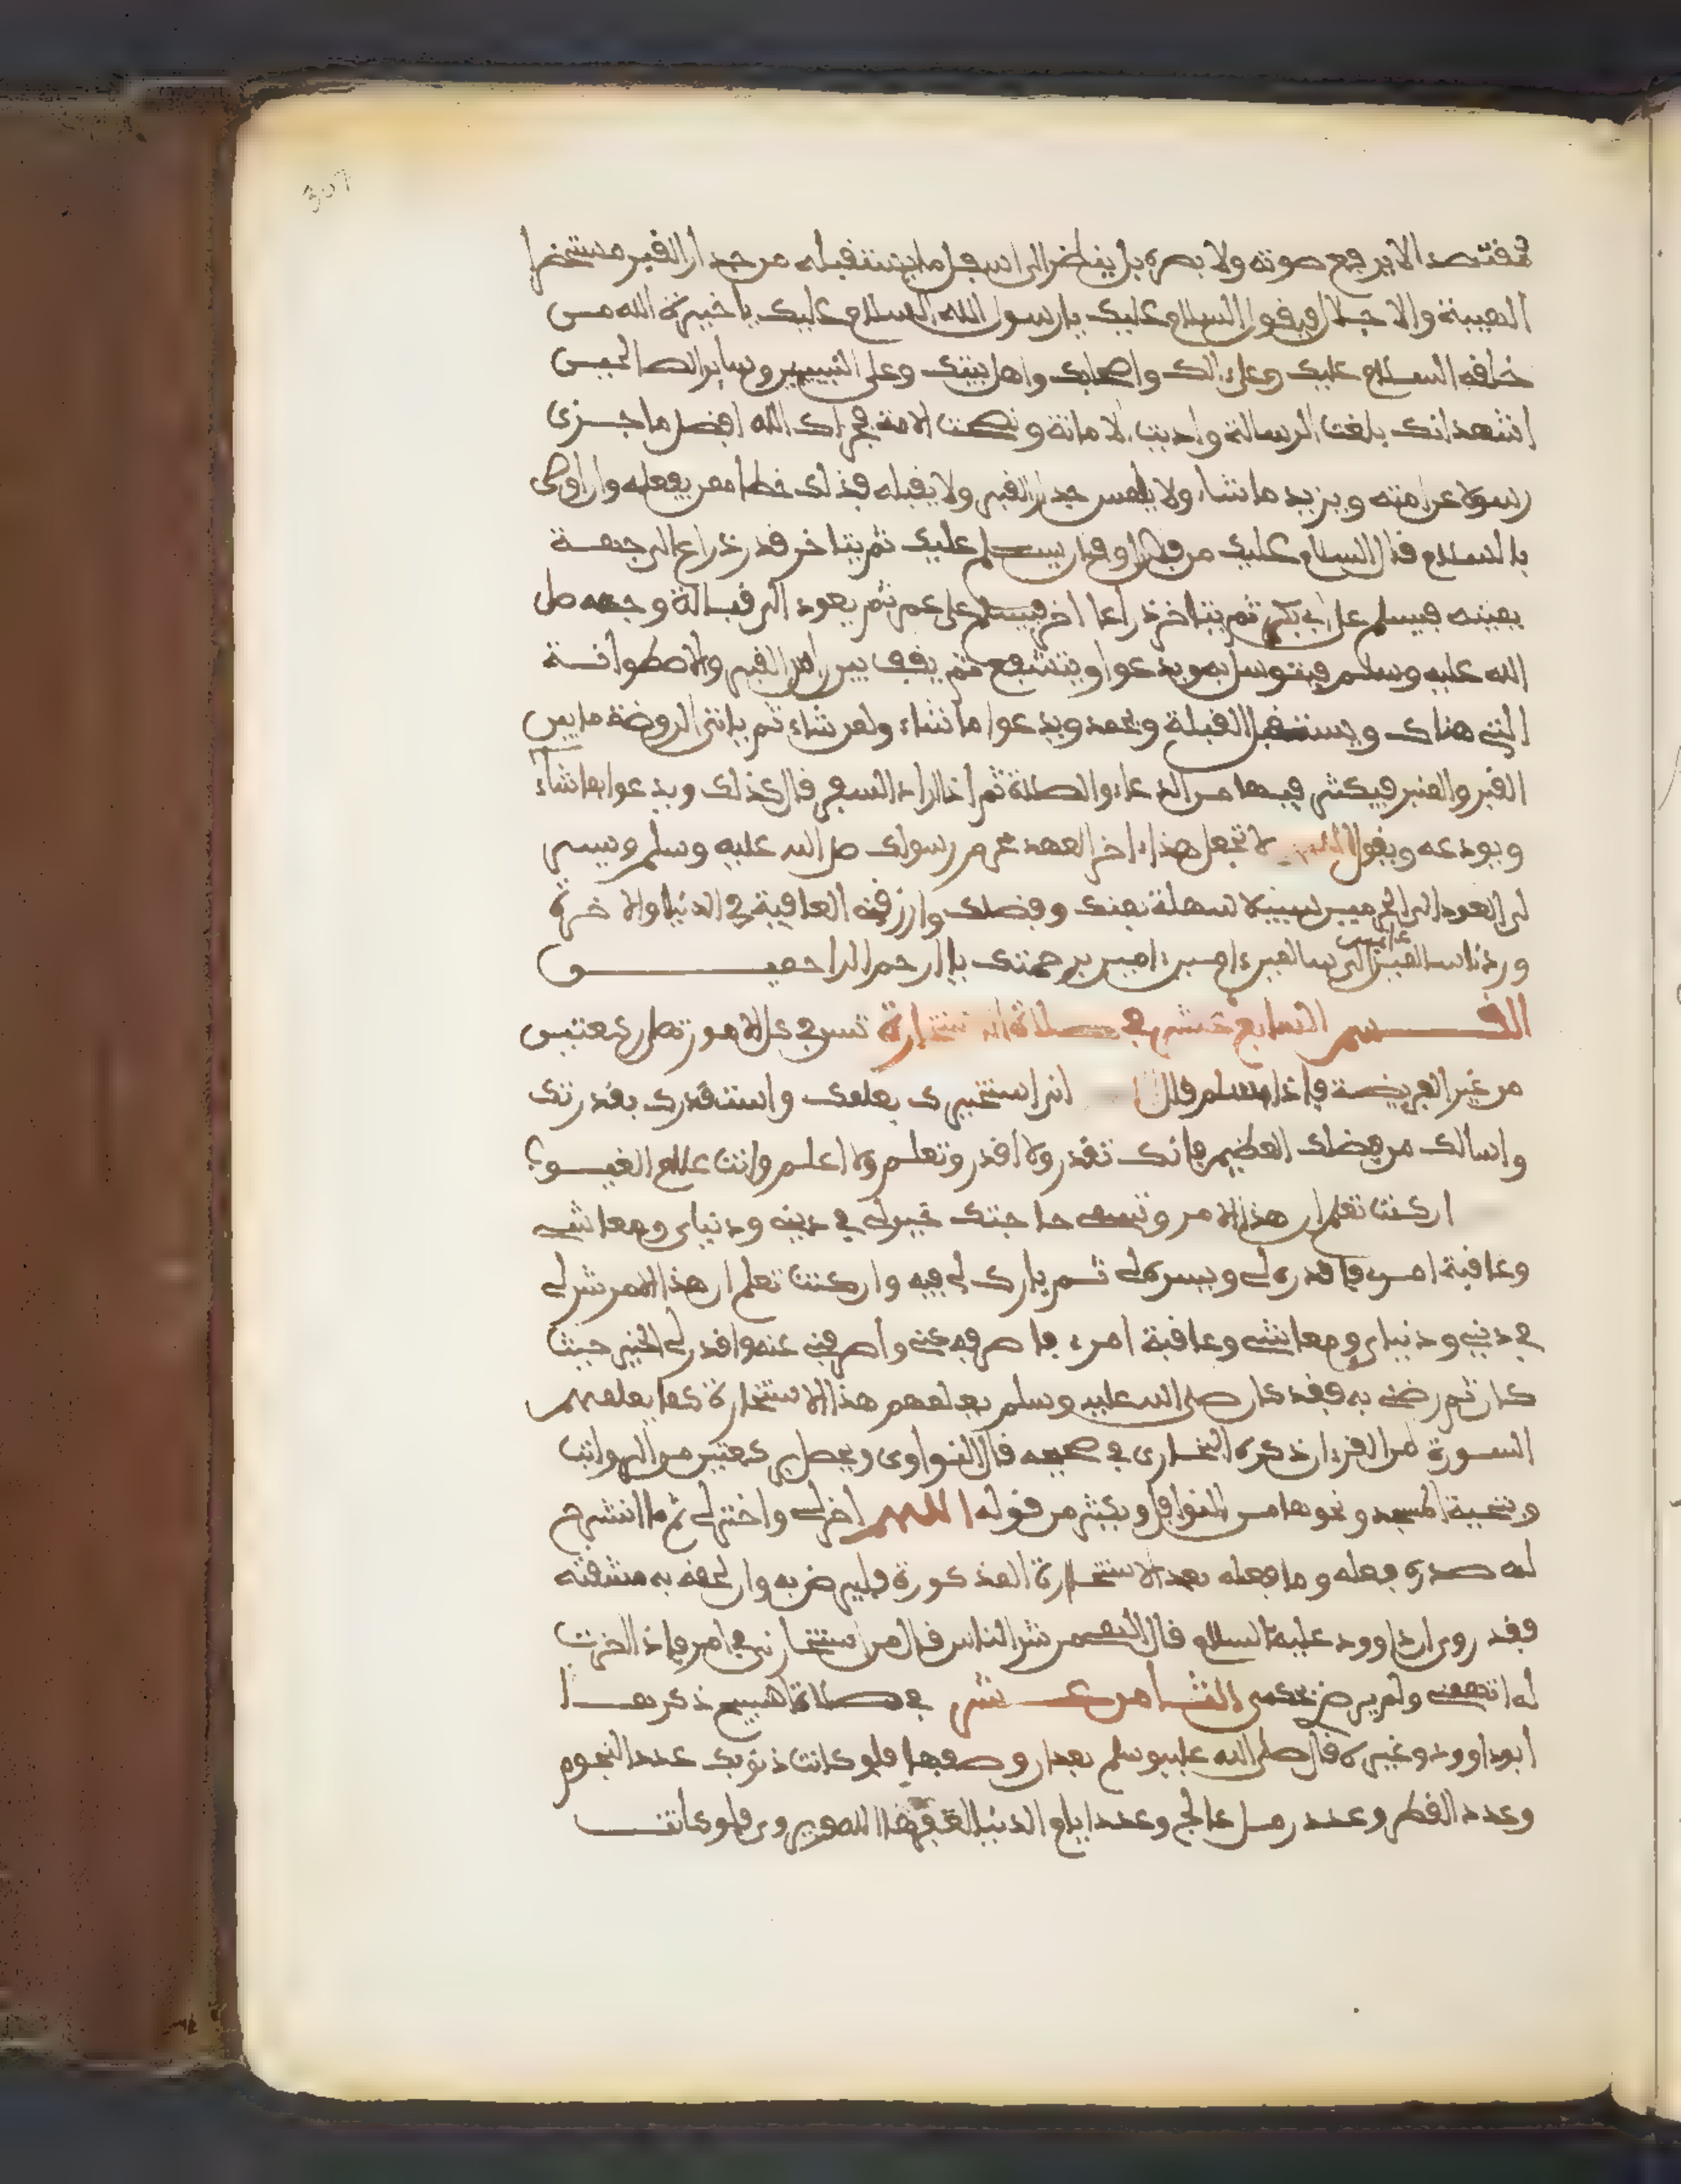 307
مقتصدا لا يرفع صوته ولا بصره بل ينظر الى اسفل ما يستقبله من جدار القبر مستحضرا
الهيبة والاجلال فيقول السلام عليك يا رسول الله السلام عليك يا خيرة الله من
خلقه السلام عليك وعلى ءالك واصحابك واهل بيتك وعلى النبيين وساير الصالحين
اشهد انك بلغت الرسالة واديت الامانة ونصحت الامة فجزاك الله افضل ما جزى
رسولا عن امته ويزيد ما شاء ولا يلمس جدار القبر ولا يقبله فذلك خطا ممن يفعله وان اوصى
بالسلام قال السلام عليك من فلان او فلان يسلم عليك ثم يتاخر قدر ذراع الى جهة
يمينه فيسلم على ابي بكر ثم يتاخر ذراعا اخر فيسلم على عمر ثم يعود الى قبالة وجهه صلى
الله عليه وسلم فيتوسل به ويدعوا ويتشفع ثم يقف بين راس القبر والاسطوانة
التي هناك ويستقبل القبلة ويحمد ويدعوا ما شاء ولمن شاء ثم ياتي الروضة ما بين
القبر والمنبر فيكثر فيها من الدعاء والصلاة ثم اذا اراد السفر فال كذلك ويدعوا بما شاء
ويودعه ويقول اللهم لا تجعل هذا ءاخر العهد بحرم رسولك صلى الله عليه وسلم ويسر
لي العود الى الحرمين سبيلا سهلة بمنك وفضلك وارزقني العافية في الدنيا والاخرة
وردنا سالمين غانمين الى سالمين ءامين ءامين برحمتك يا ارحم الراحمين
القسم السابع عشر في صلاة الاستخارة تسن في كل الامور تصلى ركعتين
من غير الفريضة فاذا سلم قال اني استخيرك بعلمك واستقدرك بقدرتك
واسالك من فضلك العظيم فانك تقدر ولا اقدر وتعلم ولا اعلم وانت علام الغيوب
ان كنت تعلم ان هذا الامر وتسمى حاجتك خير لي في ديني ودنياي ومعاشي
وعاقبة امري فاقدره لي ويسره لي ثم بارك لي فيه وان كنت تعلم ان هذا الامر شر لي
في ديني ودنياي ومعاشي وعاقبة امري فاصرفه عني واصرفني عنه واقدر لي الخير حيث
كان ثم رضني به فقد كان صلى الله عليه وسلم يعلمهم هذا الاستخارة كما يعلمهم
السورة من القرءان ذكره البخاري في صحيحه قال النواوي ويحصل بركعتين من الرواتب
وتحية المسجد ونحوها من النوافل ويكثر من قوله اللهم خر لي واختر لي ثم ما انشرح
له صدره فعله وما فعله بعد الاستخارة المذكورة فليرض به وان لحقه به مشقته
فقد روى ان داوود عليه السلام قال اللهم من شر الناس قال من استخارني في امر فاذا اخرت
له اتهمني ولم يرض بحكمي الثامن عشر في صلاة التسبيح ذكرها
ابو داوود وغيره قال صلى الله عليه وسلم بعد ان وصفها فلو كانت ذنوبك عدد النجوم
وعدد القطر وعدد رمل عالج وعدد ايام الدنيا لغفرها الله وروي فلو كانت